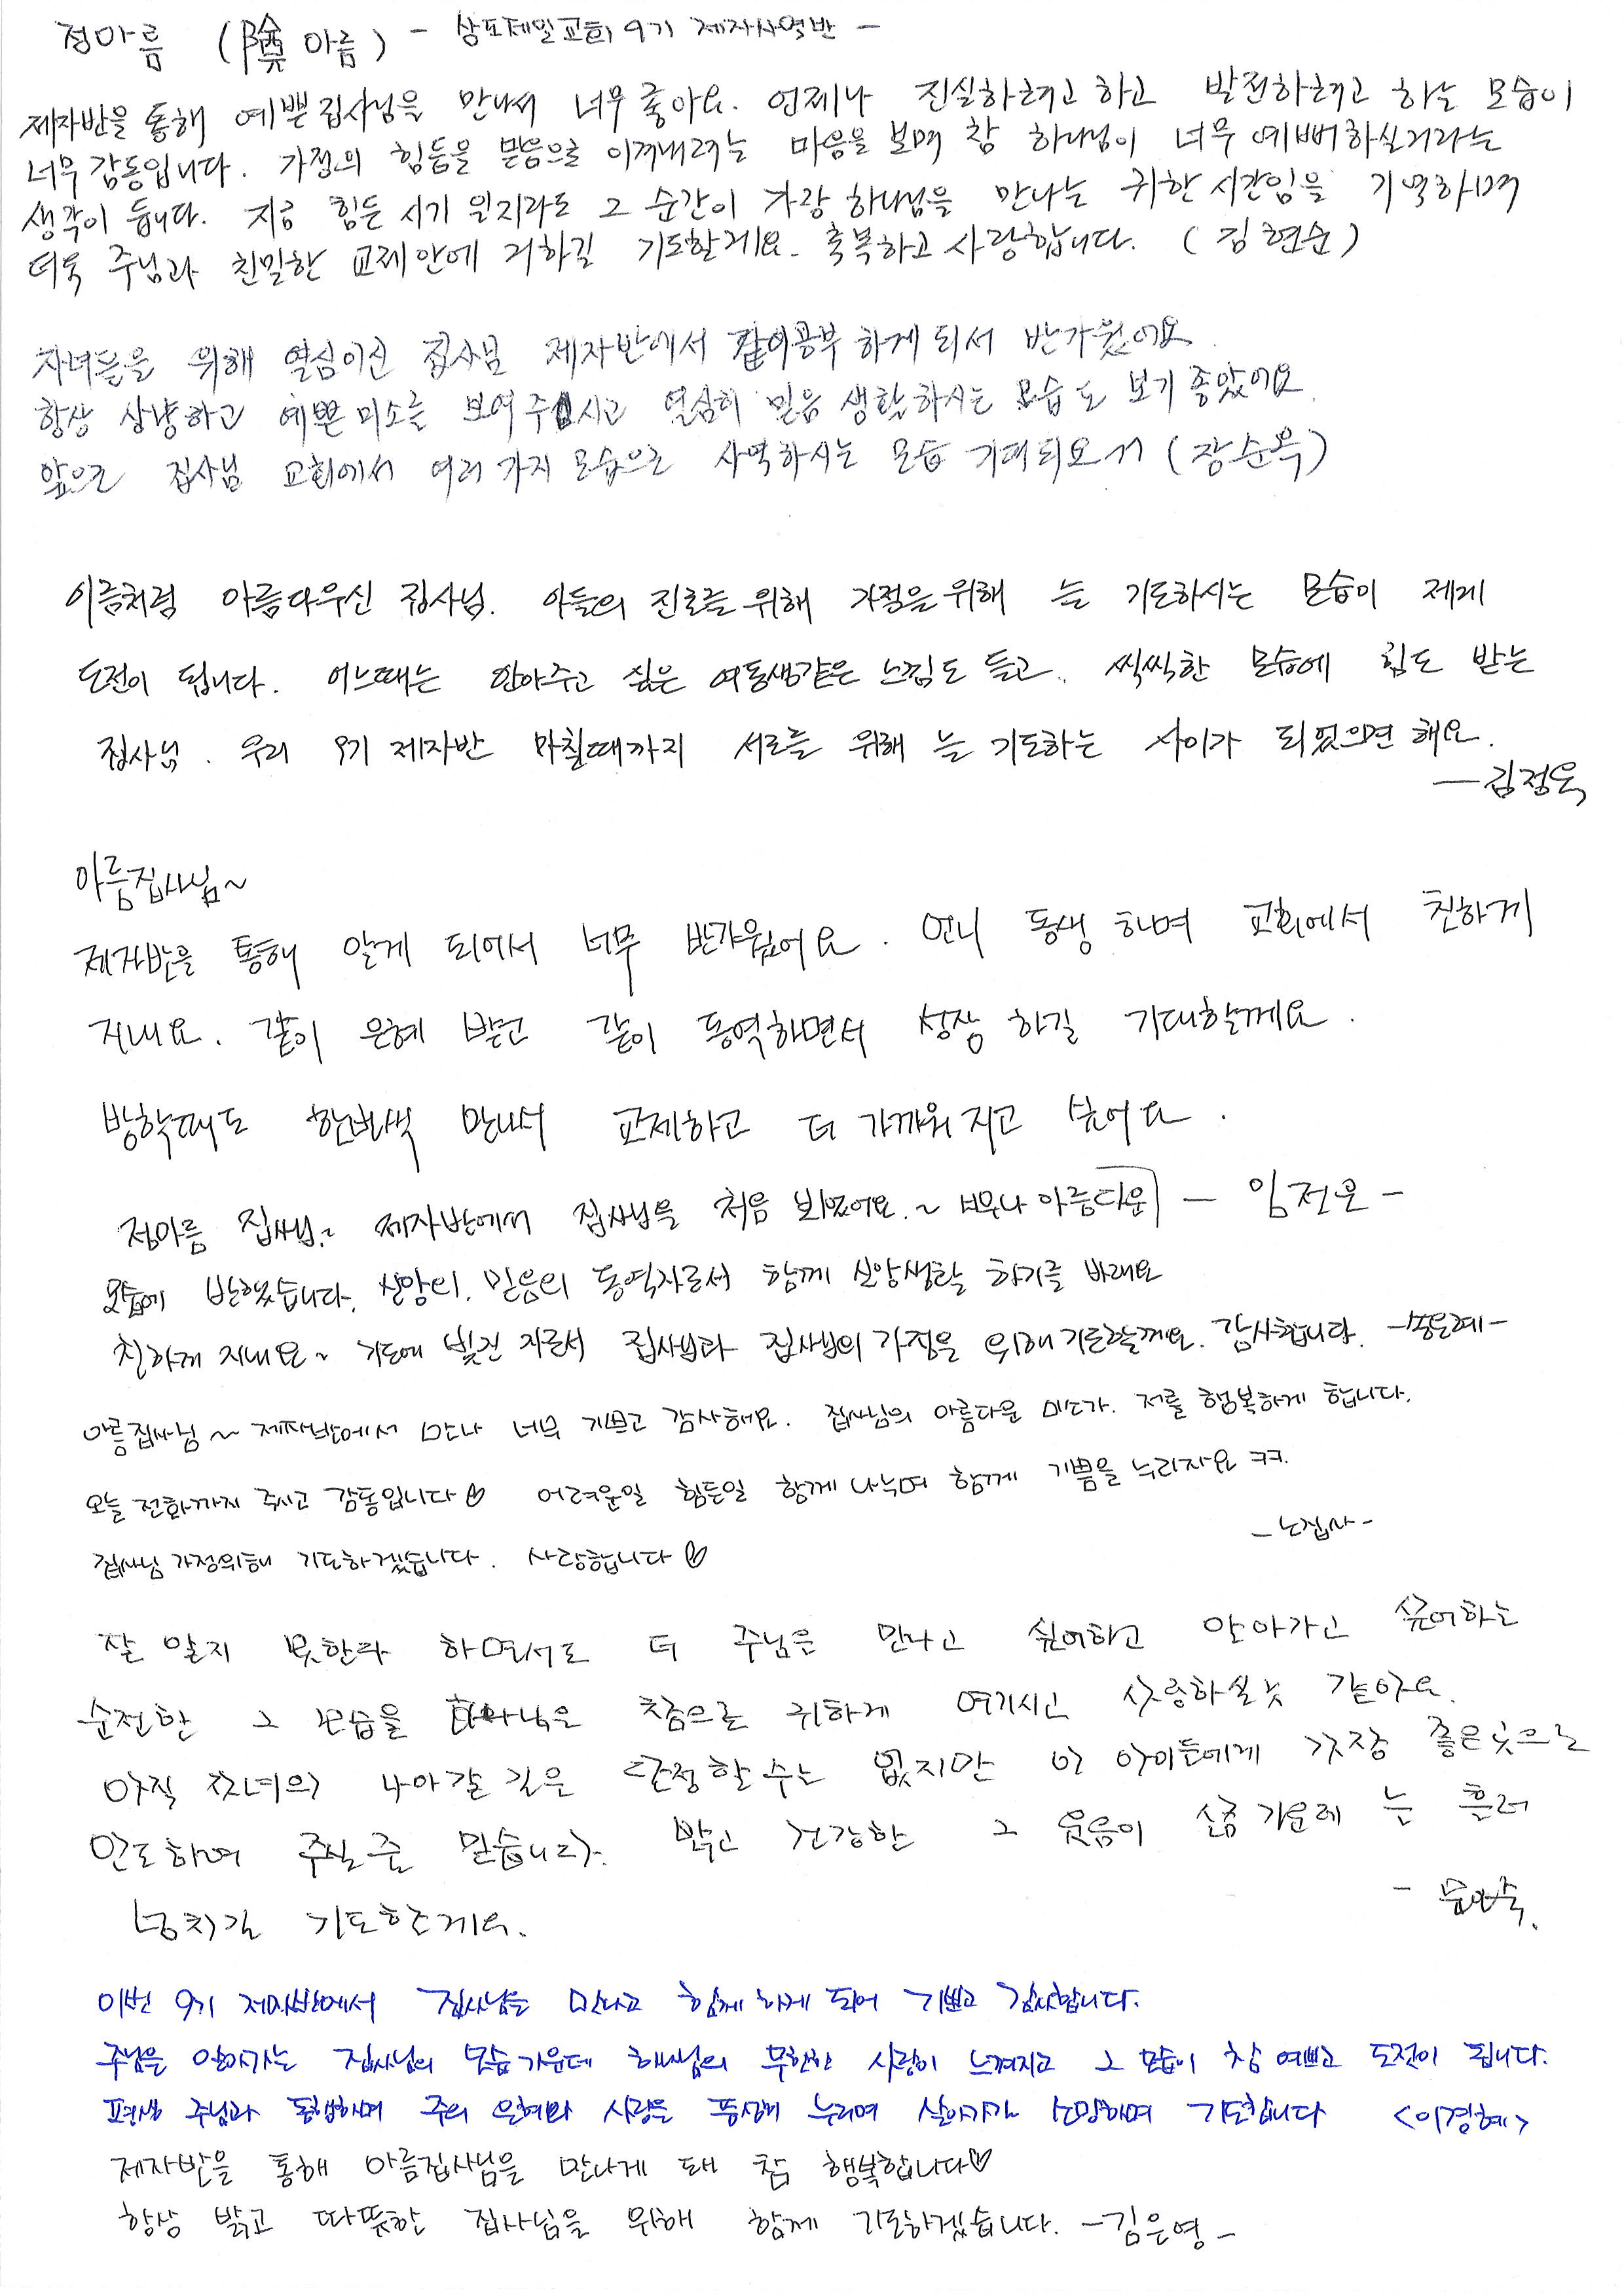 정아름 ( 아름) - 상포제일교회 9기 제자사역반 -
제자반을 통해 예쁜 집사님을 만나서 너무 좋아요. 언제나 진실하려고 하고 발전하려고 하는 모습이
너무 감동입니다. 가정의 힘듬을 믿음으로 이겨내려는 마음을 보며 참 하나님이 너무 예뻐하실거라는
생각이 듭니다. 지금 힘든 시기 일지라도 그 순간이 가장 하나님을 만나는 귀한 시간임을 기억하며
더욱 주님과 친밀한 교제안에 거하길 기도할게요. 축복하고 사랑합니다. (김현순)
자녀들을 위해 열심이신 집사님 제자반에서 같이공부 하게 되서 반가웠어요
항상 상냥하고 예쁜미소를 보여주시고 열심히 믿음 생활하시는 모습도 보기 좋았어요
앞으로 집사님 교회에서 여러가지 모습으로 사역하시는 모습 기대되요 (장순옥)
이름처럼 아름다우신 집사님. 아들의 진로를 위해 가정을 위해 늘 기도하시는 모습이 제게
도전이 됩니다. 어느때는 안아주고 싶은 여동생같은 느낌도 들고.. 씩씩한 모습에 힘도 받는
집사님. 우리 9기 제자반 마칠때까지 서로를 위해 늘 기도하는 사이가 되었으면 해요.
—김정옥
아름집사님~
제자반을 통해 알게 되어서 너무 반가웠어요. 언니 동생 하며 교회에서 친하게
지내요. 같이 은혜 받고 같이 동역하면서 성장 하길 기대할께요.
방학때도 한번씩 만나서 교제하고 더 가까워지고 싶어요.
- 임전은 -
정아름 집쌤.~ 제자반에서 집사님을 처음 뵈었어요.~ 너무나 아름다운
모습에 반했습니다. 신앙의, 믿음의 동역자로서 함께 신앙생활 하기를 바래요
친하게 지내요~ 기도에 빚진 자로서 집사님과 집사님의 가정을 위해 기도할께요. 감사합니다.
아름집사님~ 제자반에서 만나 너무 기쁘고 감사해요. 집사님의 아름다운 미소가. 저를 행복하게 합니다.
오늘 전화까지 주시고 감동입니다♡ 어려운일 힘든일 함께 나누며 함께 기쁨을 누리자요 ㅋㅋ.
집사님 가정위해 기도하겠습니다. 사랑합니다♡
- 노집사 -
잘 알지 못한다 하면서도 더 주님을 만나고 싶어하고 알아가고 싶어하는
순전한 그 모습을 하나님은 참으로 귀하게 여기시고 사랑하실것 같아요.
아직 자녀의 나아갈 길은 단정할수는 없지만 이 아이들에게 가장 좋은곳으로
인도하여 주실줄 믿습니다. 밝고 건강한 그 웃음이 삶 가운데 늘 흘러
넘치길 기도할게요.
이번 9기 제자반에서 집사님을 만나고 함께 하게 되어 기쁘고 감사합니다.
주님을 알아가는 집사님의 모습 가운데 하나님의 무한한 사랑이 느껴지고 그 모습이 참 예쁘고 도전이 됩니다.
평생 주님과 동행하며 주의 은혜와 사랑을 풍성히 누리며 살아가기 소망하며 기도합니다 <이경혜>
제자반을 통해 아름집사님을 만나게 돼 참 행복합니다♡
항상 밝고 따뜻한 집사님을 위해 함께 기도하겠습니다. -김은영-